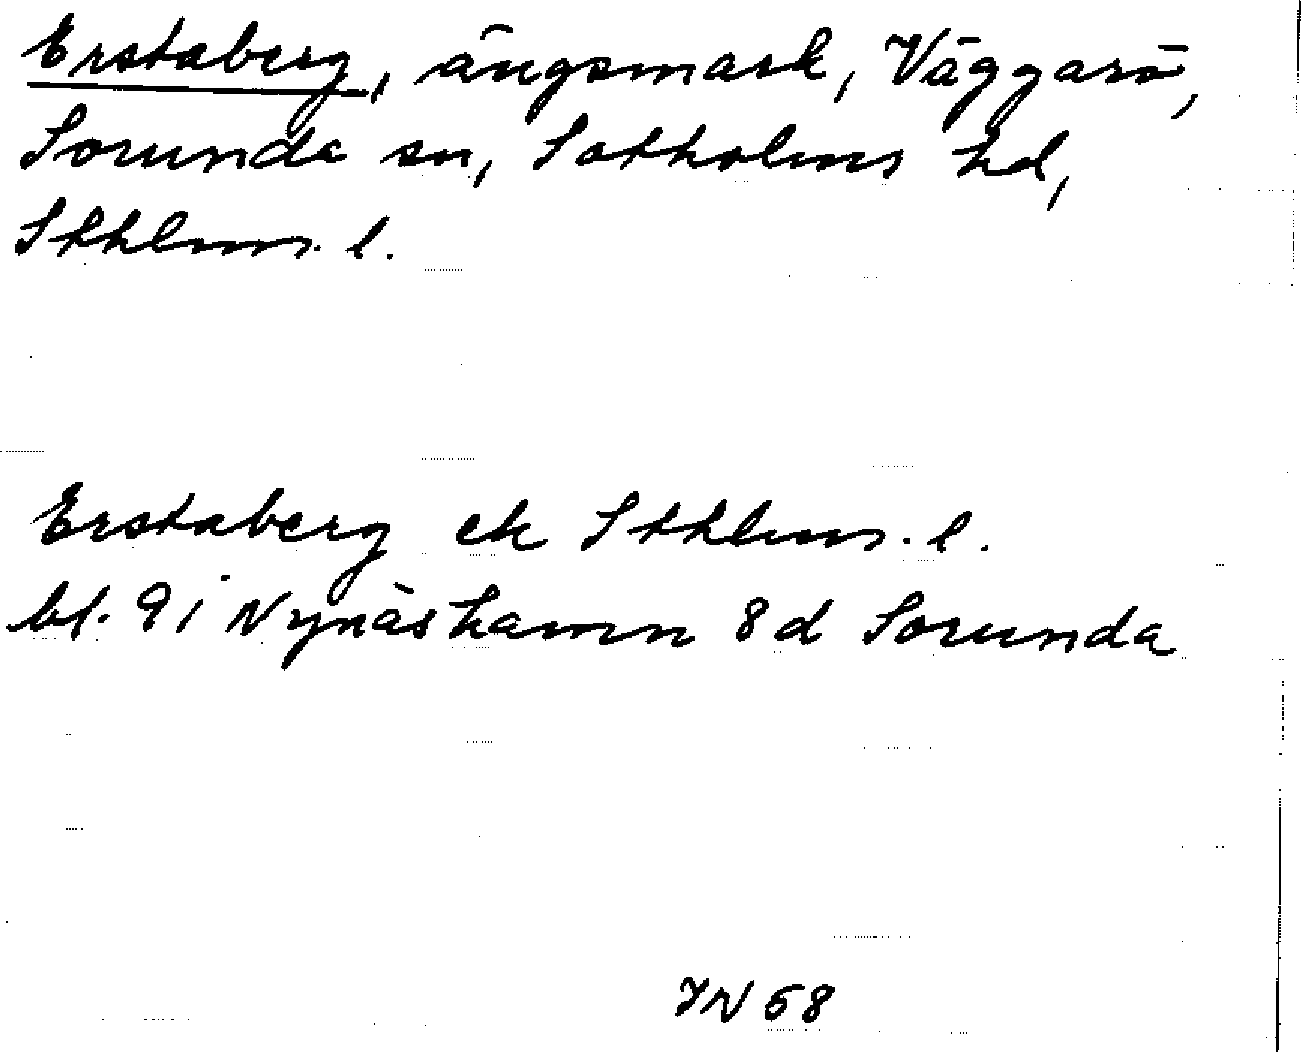 Erstaberg, ängsmark, Väggarö,
Sorunda sn, Sotholms hd,
Sthlms. l.
Erstaberg ek Sthlms. l.
bl. 9i Nynäshamn 8d Sorunda
IN 58